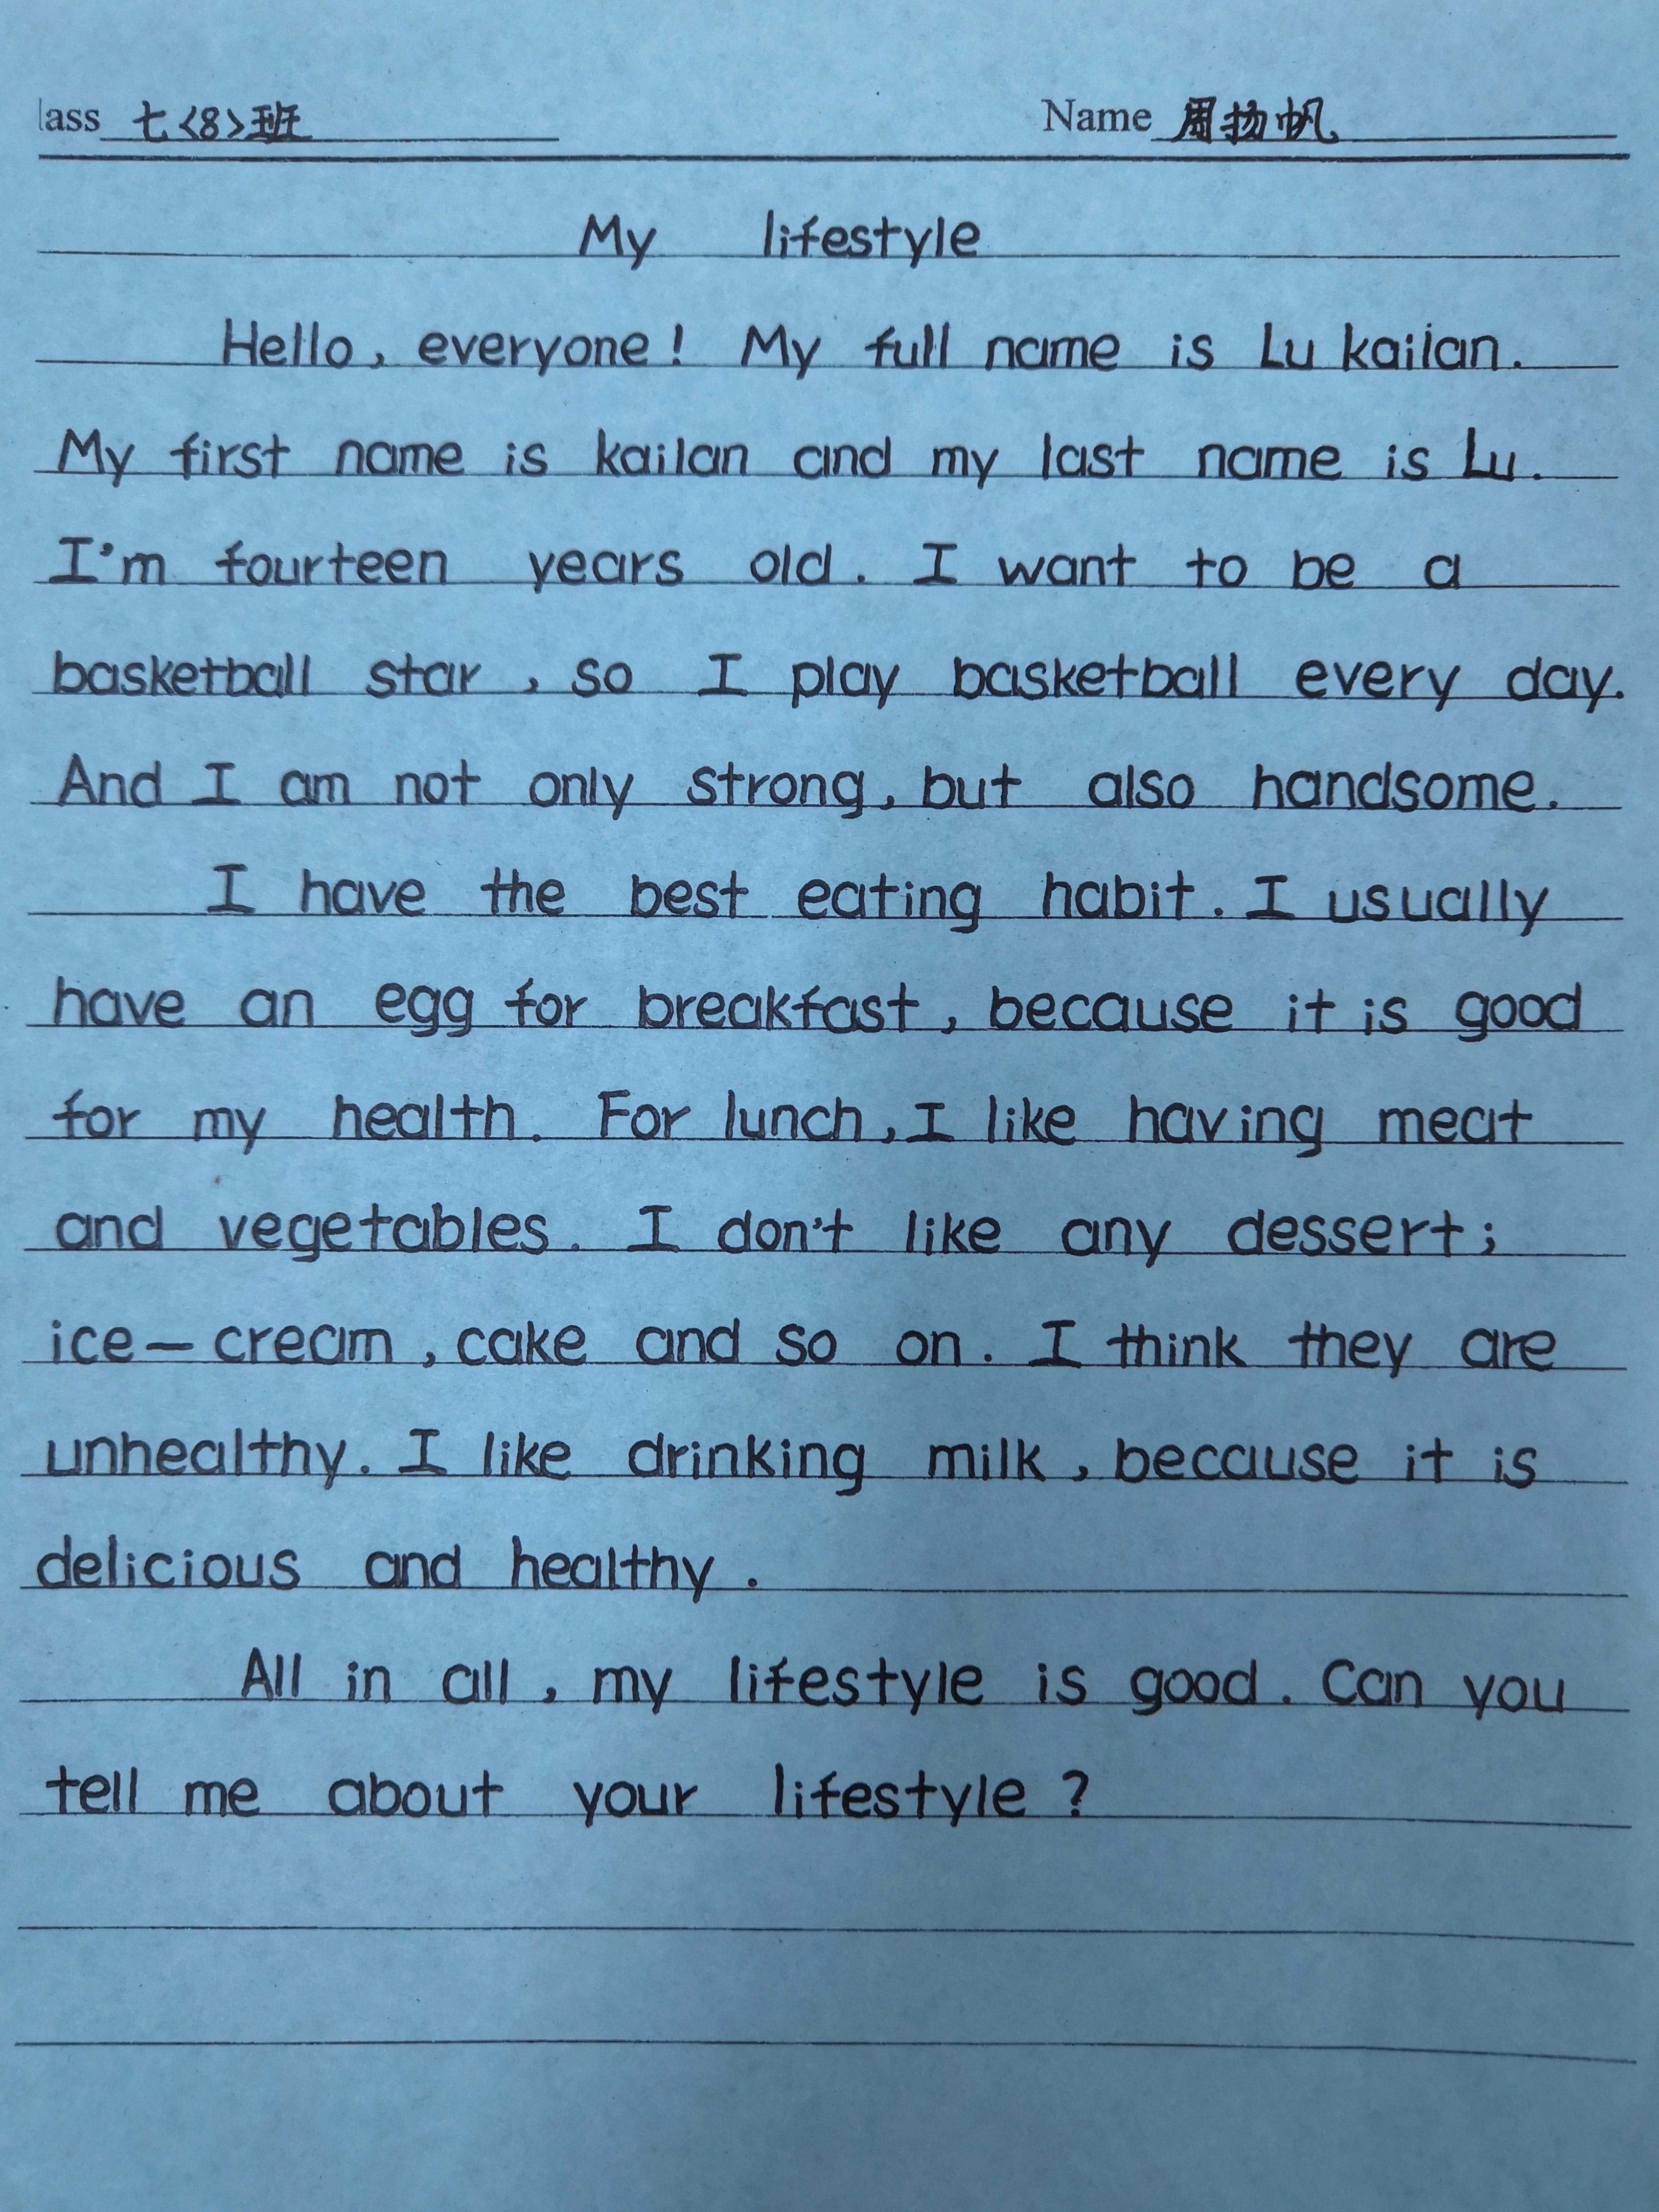 lass 七<8>班 Name 周扬帆
My lifestyle
Hello, everyone! My full name is Lu kailan.
My first name is kailan and my last name is Lu.
I'm fourteen years old. I want to be a
basketball star, so I play basketball every day.
And I am not only strong, but also handsome.
I have the best eating habit. I usually
have an egg for breakfast, because it is good
for my health. For lunch, I like having meat
and vegetables. I don't like any dessert;
ice-cream, cake and so on. I think they are
unhealthy. I like drinking milk, because it is
delicious and healthy.
All in all, my lifestyle is good. Can you
tell me about your lifestyle?